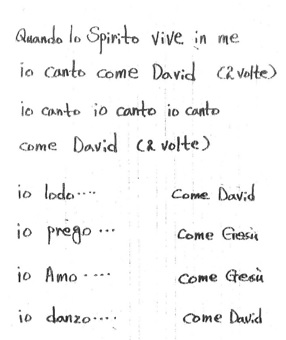 Quando lo Spirito vive in me
io canto come David (2 volte)
io canto io canto io canto
come David (2 volte)
io lodo.... come David
io prego ... come Gesù
io Amo .... come Gesù
io danzo.... come David